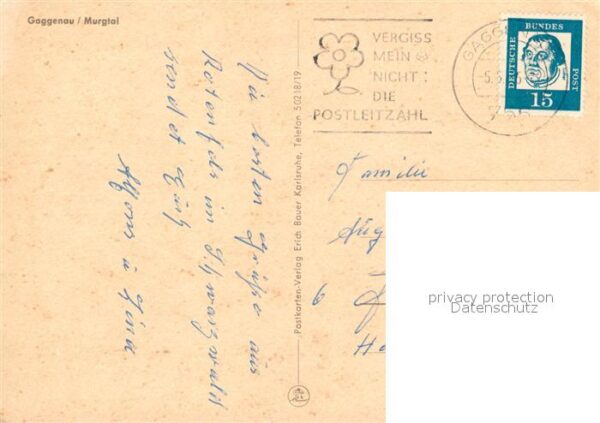 Gaggenau / Murgtal
VERGISS
MEIN
NICHT:
DIE
POSTLEITZAHL
DEUTSCHE
BUNDES
POST
15
Grüße aus
Rotenfels im Schwarzwald
sendet Euch
Alfons u
Postkarten-Verlag Erich Bauer Karlsruhe, Telefon 50218/19
Familie
6
privacy protection
Datenschutz